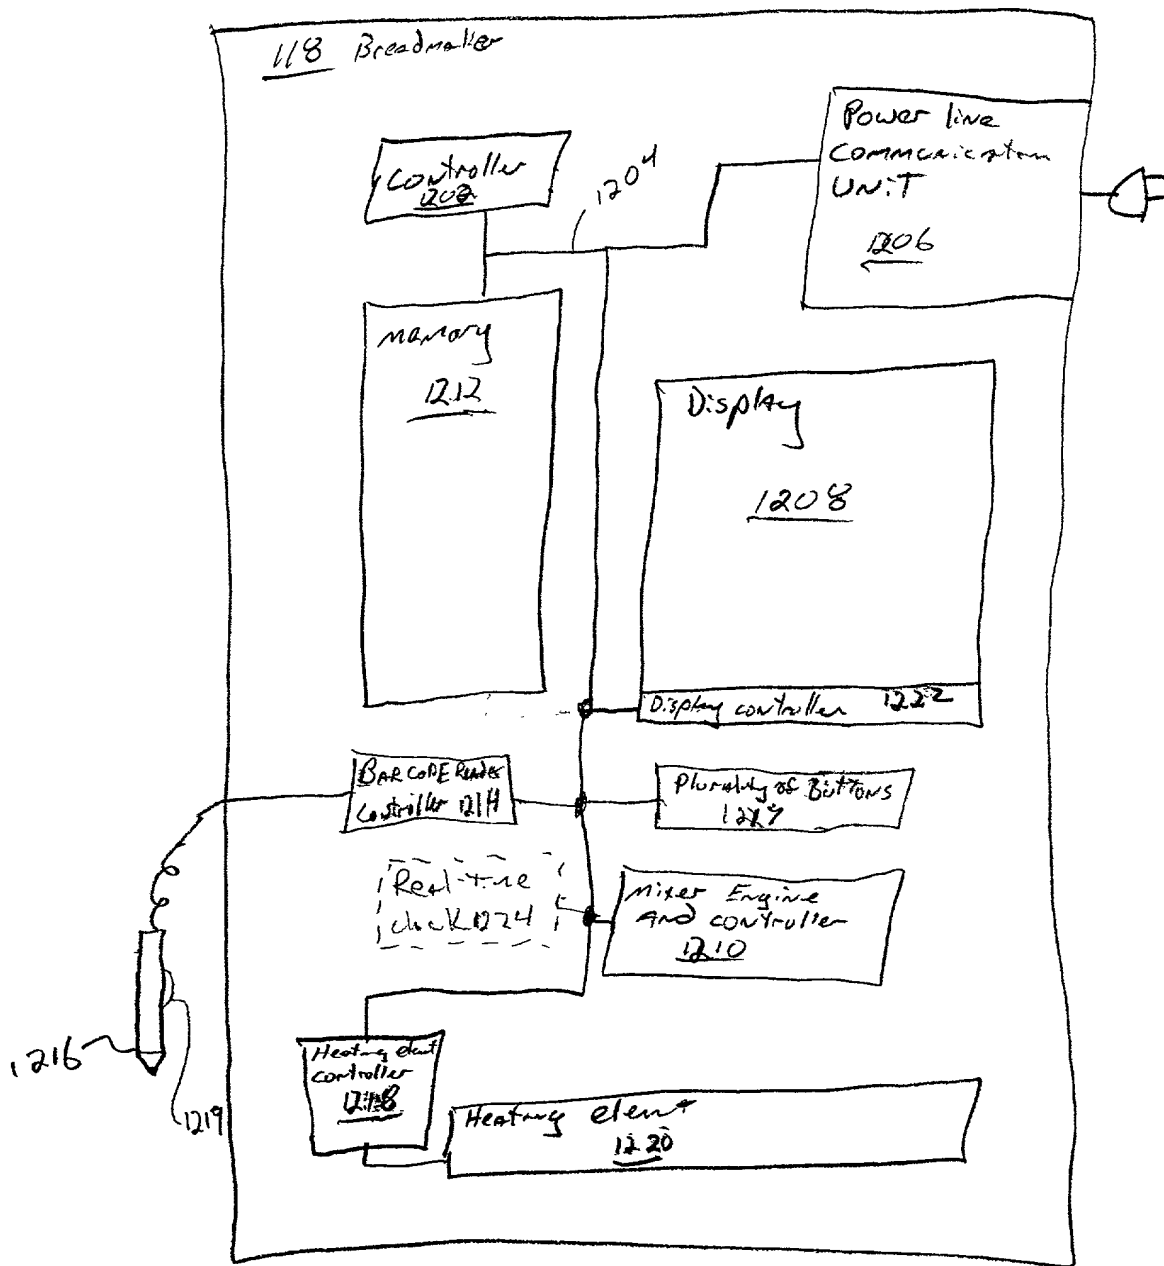 118 Breadmaker
Power line
Communication
UNIT
1206
Controller
1202
1204
memory
1212
Display
1208
Display controller 1222
BAR CODE Reader
Controller 1214
Plurality of Buttons
Real-time
clock 1224
Mixer Engine
And controller
1210
1216
1219
Heating elent
controller
1218
Heating elent
1220